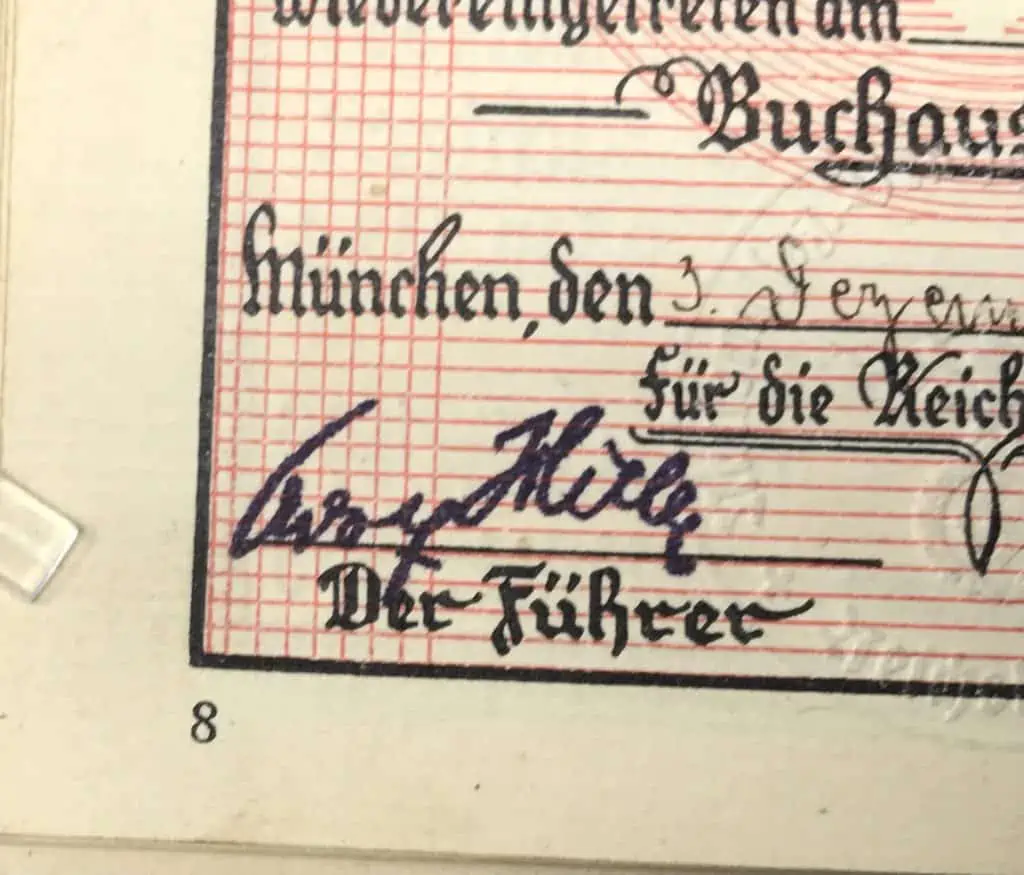 wiedereingetreten am
Buchaus
München, den 3. Dezem
für die Reich
Adolf Hitler
Der Führer
8